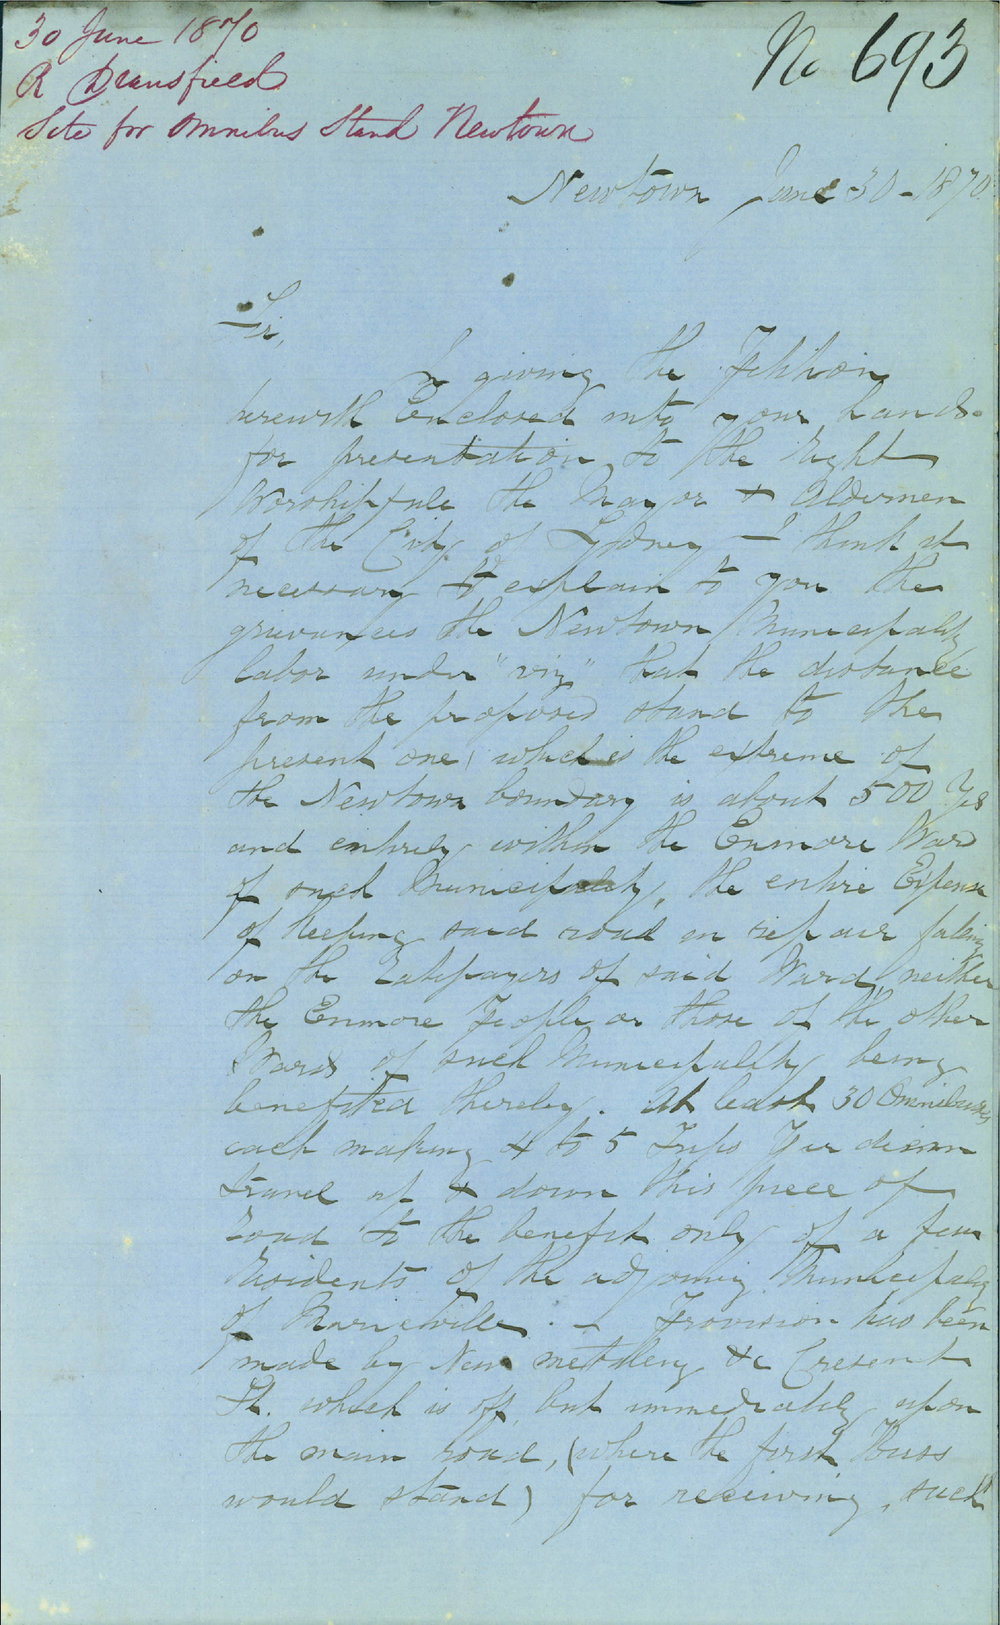 30 June 1870
R Dransfield
Site for Omnibus Stand Newtown
No 693
Newtown June 30 - 1870
Sir,
In giving the Petition
herewith Enclosed into your hands
for presentation to the Right
Worshipfule the Mayor & Aldermen
of the City of Sydney - I think it
necessary to explain to you the
grievances the Newtown Municipality
labor under "viz" that the distance
from the proposed stand to the
present one, which is the extreme of
the Newtown boundary is about 500 Yds
and entirely within the Enmore Ward
of such Municipality, the entire Expense
of Keeping said road in repair falling
on the Ratepayers of said Ward, neither
the Enmore People or those of the other
Wards of such Municipality being
benefitted thereby. At least 30 Omnibuses
each making 4 to 5 Trips Per diem
travel up & down this piece of
road to the benefit only of a few
Residents of the adjoining Municipality
of Marrickville. - Provision has been
made by New metaleng &c Cresent
St. which is off, but immediately upon
the main road, (where the first Buss
would stand) for receiving, such